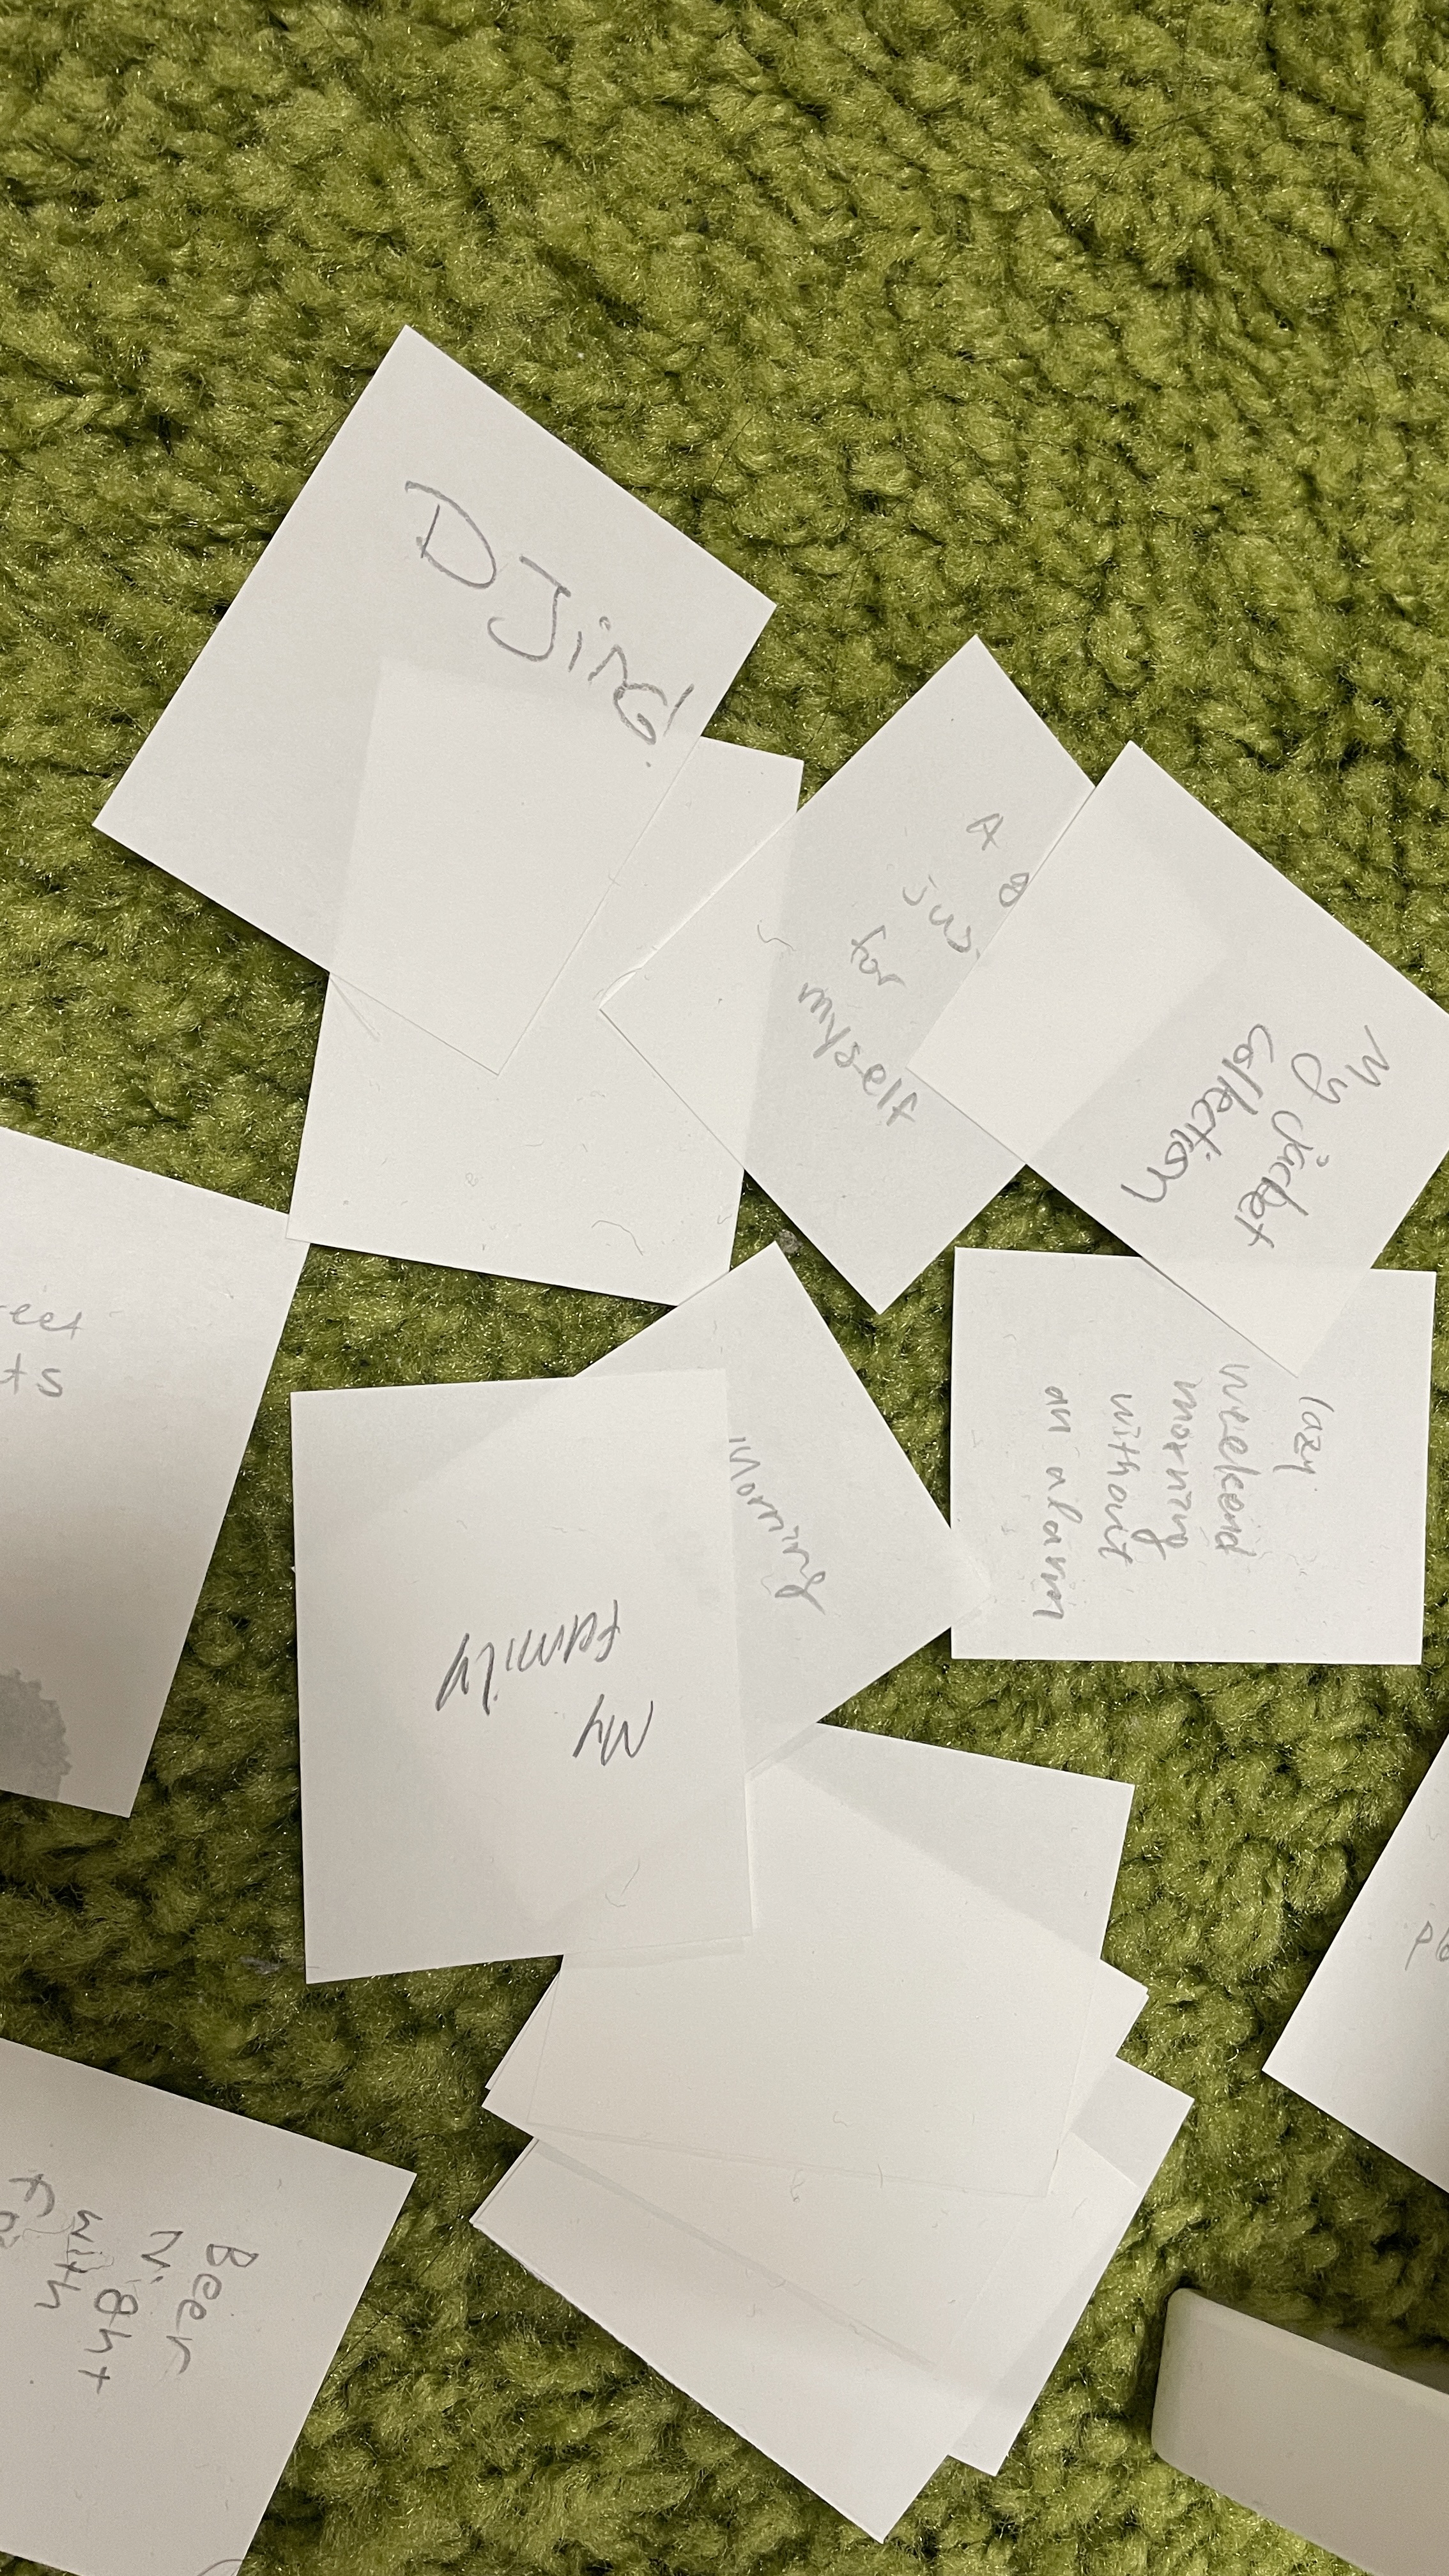 My jacket
Collection
lazy
weekend
morning
without
an alarm
A
for
myself
Morning
DJing!
My
family
Beer
Night
with